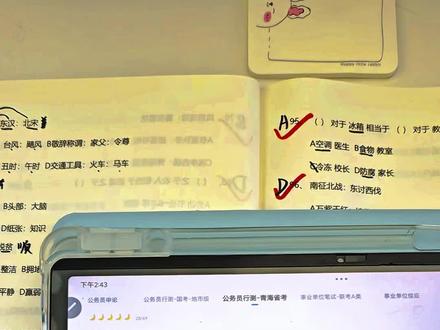 Happy little rabbit
东汉：北宋
台风：飓风 B敬辞称谓：家父：令尊
丑时：午时 D交通工具：火车：马车
B头部：大脑
D纸张：知识
脱贫
整洁
平静 D羸弱
A 95、（ ）对于 冰箱 相当于（ ）对于
A空调 医生 B食物 教室
C冷冻 校长 D防腐 家长
D 96、南征北战：东讨西伐
下午2:43
公务员申论 公务员行测-国考-地市级 公务员行测-青海省考 事业单位笔试-联考A类 事业单位综应